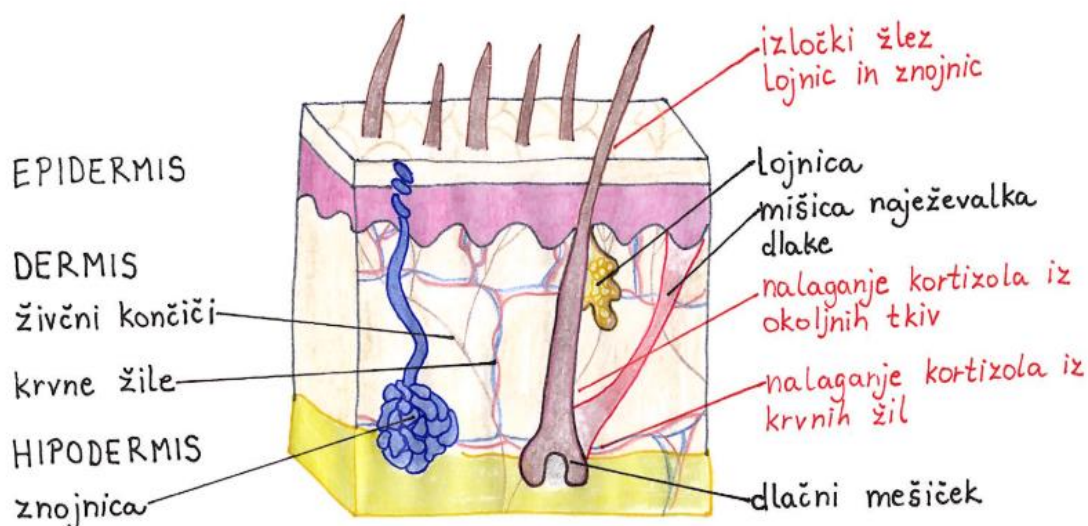 EPIDERMIS
DERMIS
živčni končiči
krvne žile
HIPODERMIS
znojnica
izločki žlez
lojnic in znojnic
lojnica
mišica naježevalka
dlake
nalaganje kortizola iz
okoljnih tkiv
nalaganje kortizola iz
krvnih žil
dlačni mešiček